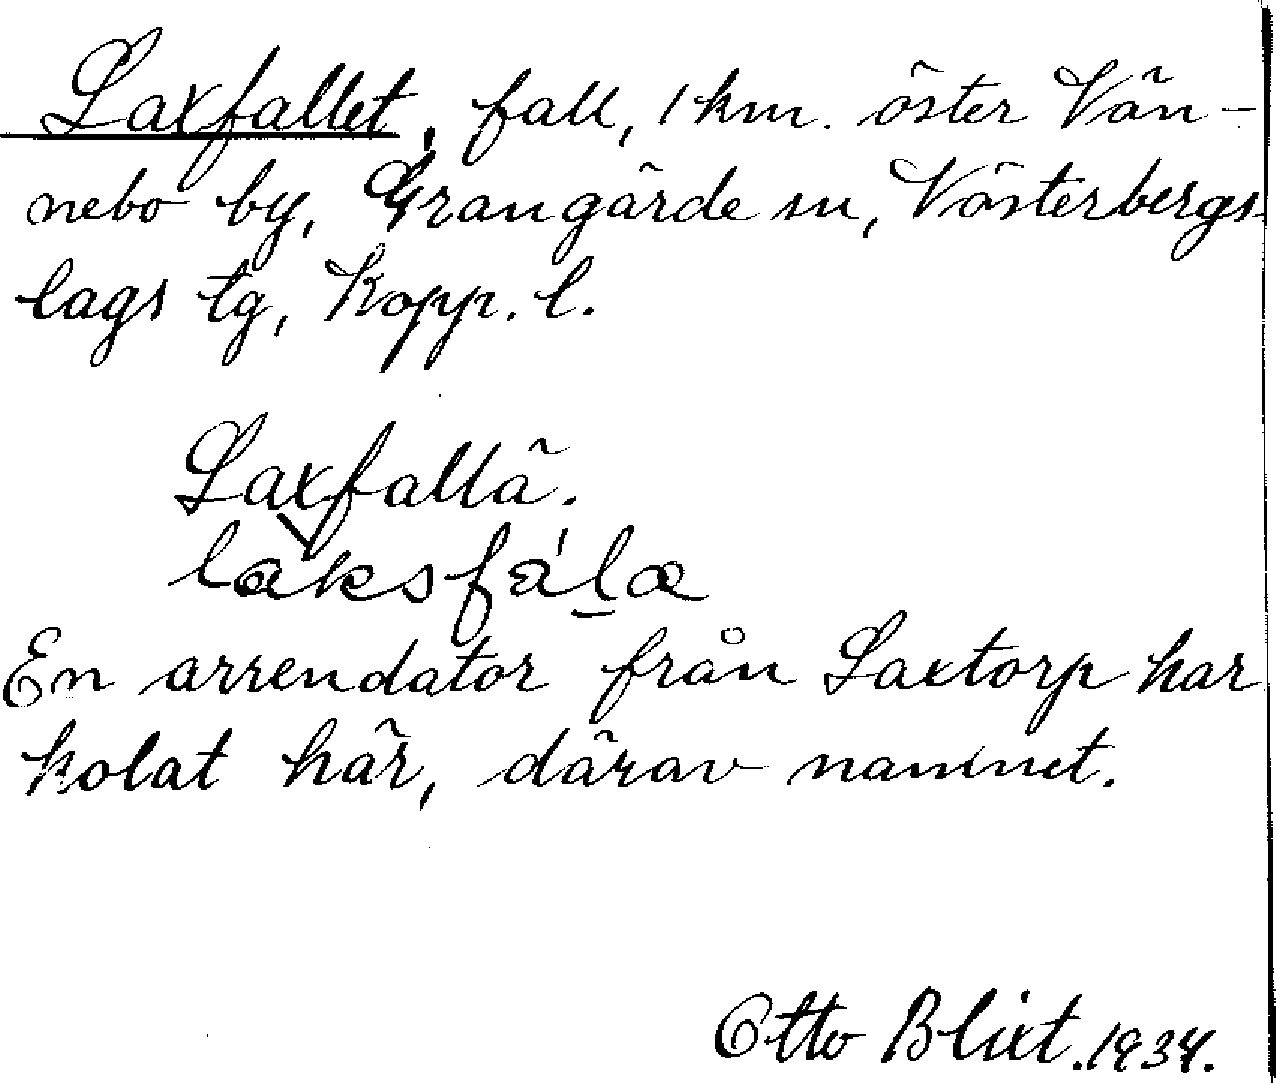 Laxfallet, fall, 1 km. öster Vän-
nebo by, Grangärde sn, Västerbergs-
lags tg, Kopp. l.
Laxfallä.
laksfála
En arrendator från Laxtorp har
kolat här, därav namnet.
Otto Blixt. 1934.